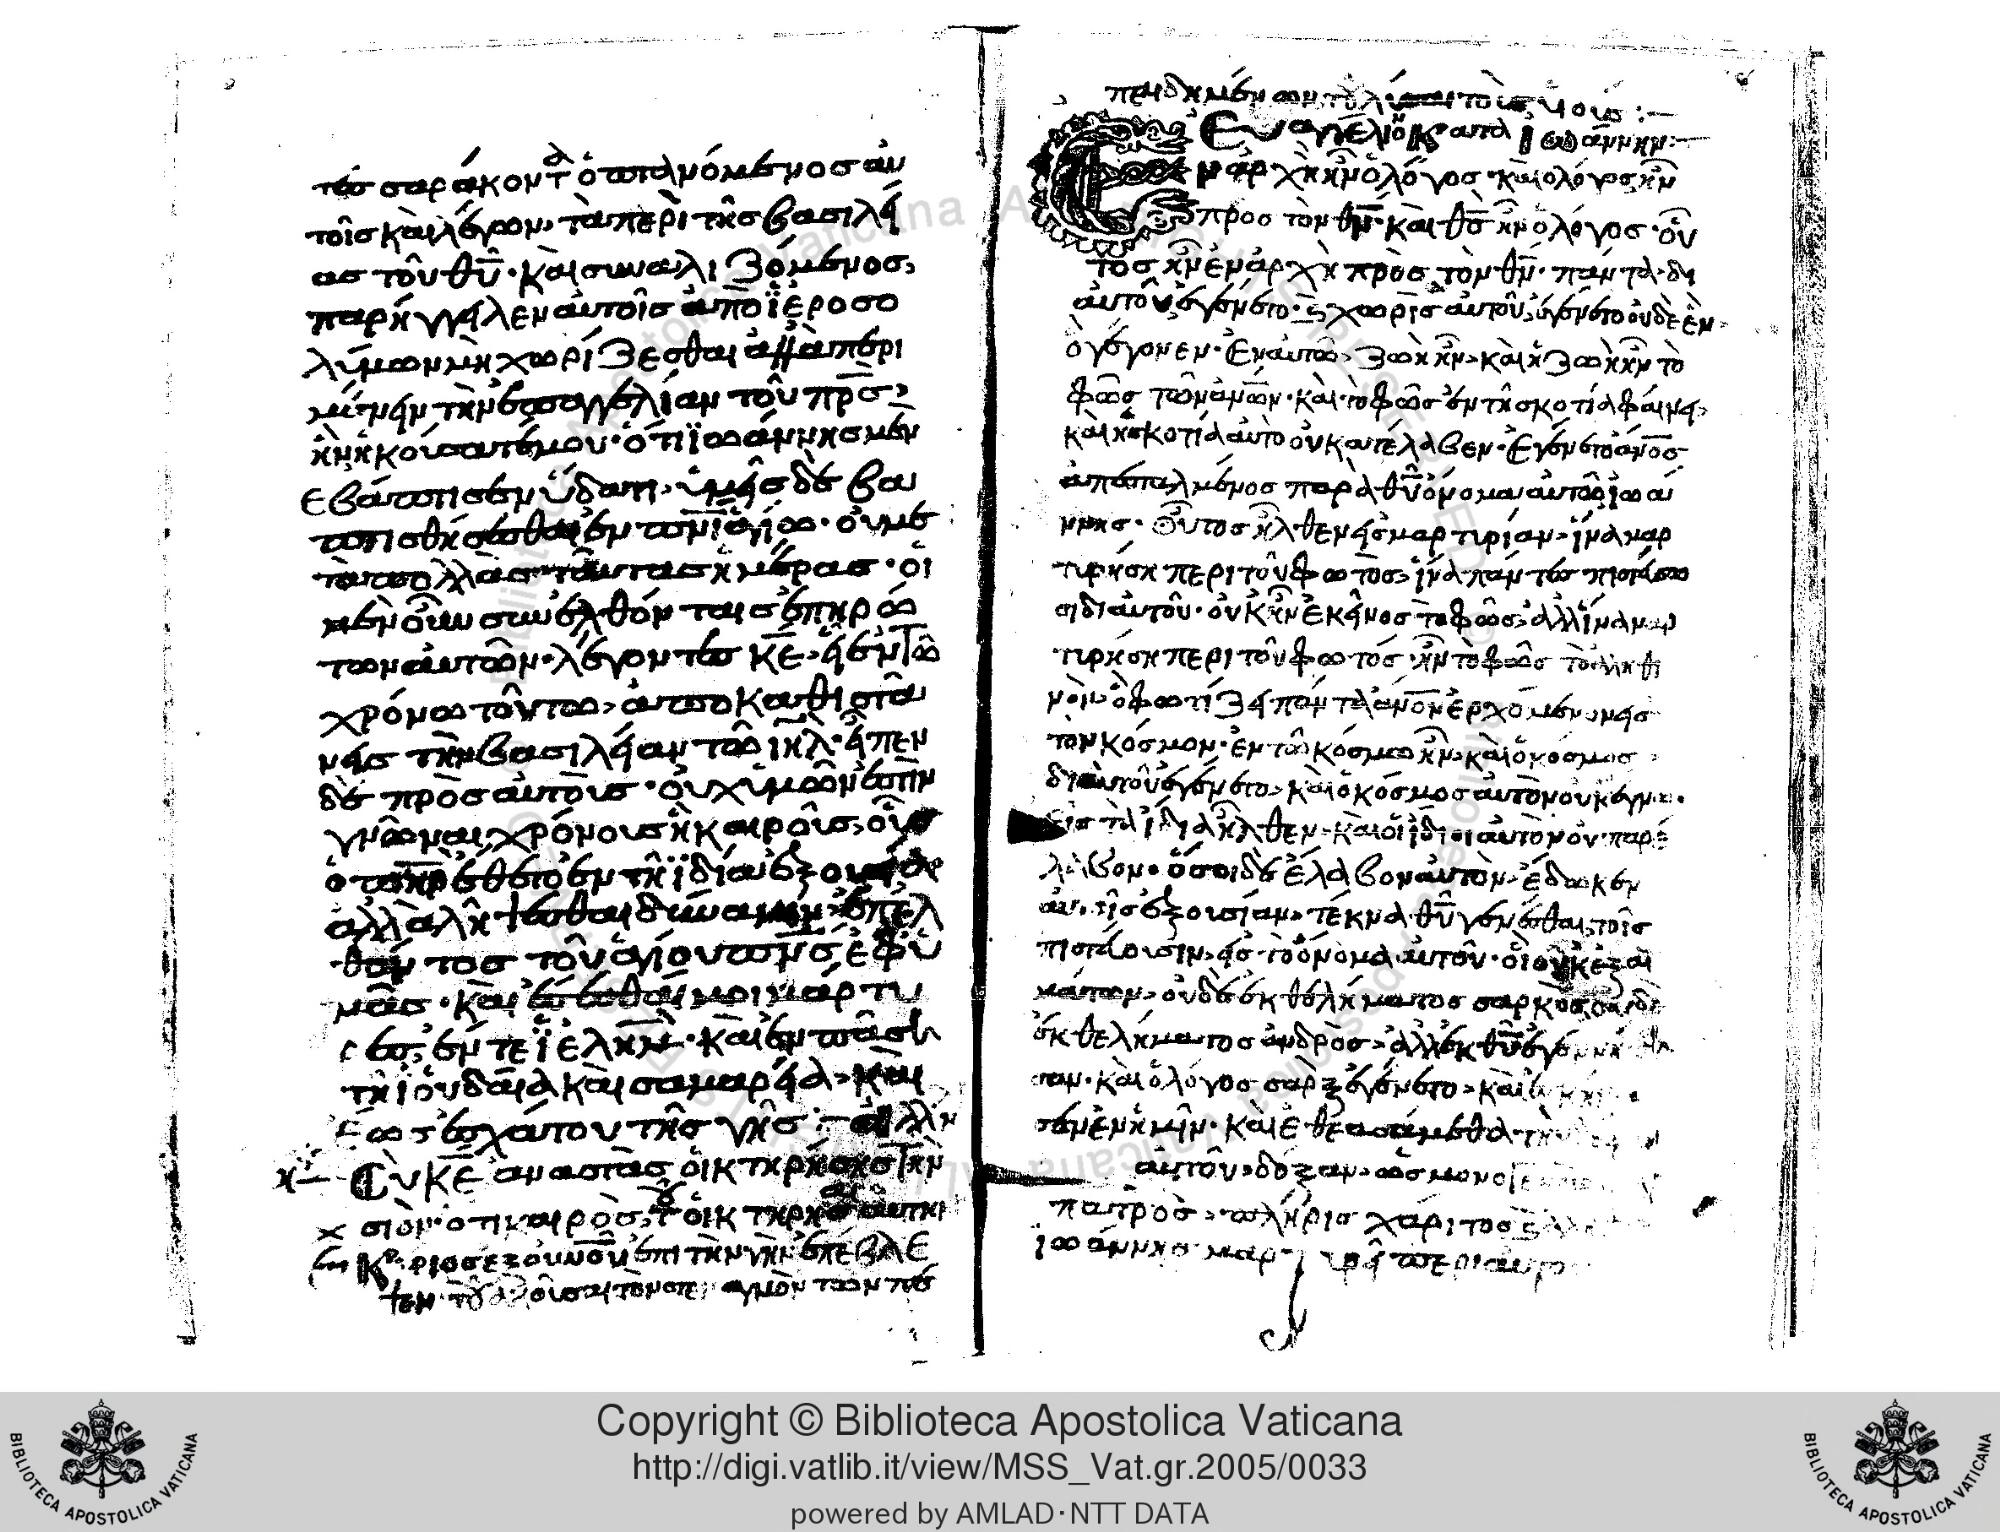 τες σαράκοντ ὀπτανόμενος αὐ
τοῖς καὶ λέγων, τὰ περὶ τῆς βασιλεί
ας τοῦ θῡ· καὶ συναλιζόμενος,
παρήγγειλεν αὐτοῖς ἀπὸ ἱεροσο
λύμων μὴ χωρίζεσθαι ἀλλὰ περι
μένειν τὴν ἐπαγγελίαν τοῦ πρ̅ς,
ἣν ἠκούσατέ μου· ὅτι ἰωάννης μὲν
ἐβάπτισεν ὕδατι, ὑμεῖς δὲ βα
πτισθήσεσθαι ἐν πνι ἁγίω· οὐ με
τὰ πολλὰς ταύτας ἡμέρας· οἱ
μὲν οὖν συνελθόντες ἐπηρώ
των αὐτὸν· λέγοντες κε, εἰ ἐν τῶ
χρόνω τούτω, ἀποκαθιστά
νεις τὴν βασιλείαν τῶ ιηλ· εἶπεν
δὲ πρὸς αὐτοὺς· οὐχ ὑμῶν ἐστὶν
γνῶναι χρόνους ἢ καιροὺς, οὓς
ὁ πηρ ἔθετο ἐν τῆ ἰδία ἐξουσία
ἀλλὰ λήψεσθαι δύναμιν, ἐπελ
θόντος τοῦ ἁγίου πνς ἐφ ὑ
μᾶς· καὶ ἔσεσθαί μοι μάρτυ
ρες, ἔν τε ἱελημ· καὶ ἐν πάση
τῆ ἰουδαία καὶ σαμαρεία, καὶ
ἕως ἐσχάτου τῆς γῆς:
Σὺ κε ἀναστὰς οἰκτηρήσης τὴν
σιὼν· ὅτι καιρὸς τοῦ οἰκτηρῆσαι αὐτήν
Κύριος ἐξ οὐνοῦ ἐπὶ τὴν γῆν ἐπέβλε
ψεν· τοῦ ἀκοῦσαι τὸν στεναγμὸν τῶν πε
πεδημένων, τοῦ λῦσαι τοὺς υἱούς:—
Εὐαγγέλιον κατὰ Ἰωάννην:—
Ἐν ἀρχῆ ἦν ὁ λόγος· καὶ ὁ λόγος ἦν
προς τὸν θν· καὶ θς ἦν ὁ λόγος· οὗ
τος ἦν ἐν ἀρχῆ πρὸς τὸν θν· πάντα δι
αὐτοῦ ἐγένετο· καὶ χωρὶς αὐτοῦ, ἐγένετο οὐδὲ ἓν
ὃ γέγονεν· Ἐν αὐτῶ, ζωὴ ἦν, καὶ ἡ ζωὴ ἦν τὸ
φῶς τῶν ἀνων· καὶ τὸ φῶς ἐν τῆ σκοτία φαίνει,
καὶ ἡ σκοτία αὐτὸ οὐ κατέλαβεν· Ἐγένετο ἀνος
ἀπεσταλμένος παρὰ θῡ ὄνομα αὐτῶ ἰωά
ννης· Οὗτος ἦλθεν εἰς μαρτυρίαν, ἵνα μαρ
τυρήση περὶ τοῦ φωτὸς, ἵνα πάντες πιστεύσω
σι δι αὐτοῦ· οὐκ ἦν ἐκεῖνος τὸ φῶς, ἀλλ ἵνα μαρ
τυρήση περὶ τοῦ φωτός· ἦν τὸ φῶς τὸ ἀληθι
νὸν, ὃ φωτίζει πάντα ἀνον ἐρχόμενον εἰς
τὸν κόσμον· ἐν τῶ κόσμω ἦν, καὶ ὁ κόσμος
δι αὐτοῦ ἐγένετο, καὶ ὁ κόσμος αὐτὸν οὐκ ἔγνω·
Εἰς τὰ ἴδια ἦλθεν, καὶ οἱ ἴδιοι αὐτὸν οὐ παρέ
λαβον· ὅσοι δὲ ἔλαβον αὐτὸν, ἔδωκεν
αὐτοῖς ἐξουσίαν, τέκνα θῡ γενέσθαι, τοῖς
πιστεύουσιν, εἰς τὸ ὄνομα αὐτοῦ· οἳ οὐκ ἐξ αἱ
μάτων, οὐδὲ ἐκ θελήματος σαρκὸς, οὐδὲ
ἐκ θελήματος ἀνδρὸς, ἀλλ ἐκ θῡ ἐγεννήθη
σαν· καὶ ὁ λόγος σὰρξ ἐγένετο, καὶ ἐσκήνω
σεν ἐν ἡμῖν· καὶ ἐθεασάμεθα τὴν
αὐτοῦ, δόξαν, ὡς μονογενοῦς
πατρὸς, πλήρις χάριτος
ἰωάννης μαρτυρεῖ περὶ αὐτοῦ
Copyright © Biblioteca Apostolica Vaticana
http://digi.vatlib.it/view/MSS_Vat.gr.2005/0033
powered by AMLAD·NTT DATA
BIBLIOTECA APOSTOLICA VATICANA
BIBLIOTECA APOSTOLICA VATICANA